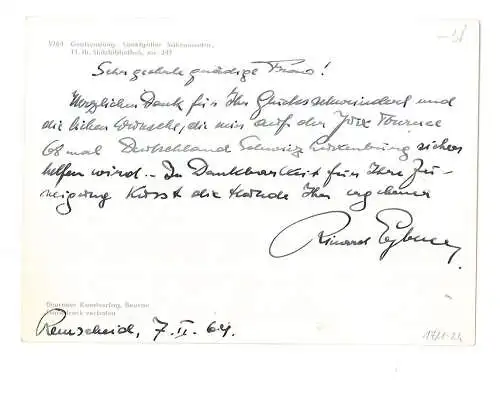 9764 Gestspaltung Sanktgaller Sakramentar,
11. Jh. Stiftsbibliothek, nr. 341
Sehr geehrte gnädige Frau!
Herzlichen Dank für Ihr Glücksschweinderl und
die lieben Wünsche, die mir auf der Tournee
68 mal Deutschland Schweiz Luxemburg sicher
helfen wird. – In Dankbarkeit für Ihre Zu-
neigung küsst die Hände Ihr ergebener
Richard Eybner
Beuroner Kunstverlag, Beuron
Nachdruck verboten
Remscheid, 7. II. 64.
1721-24